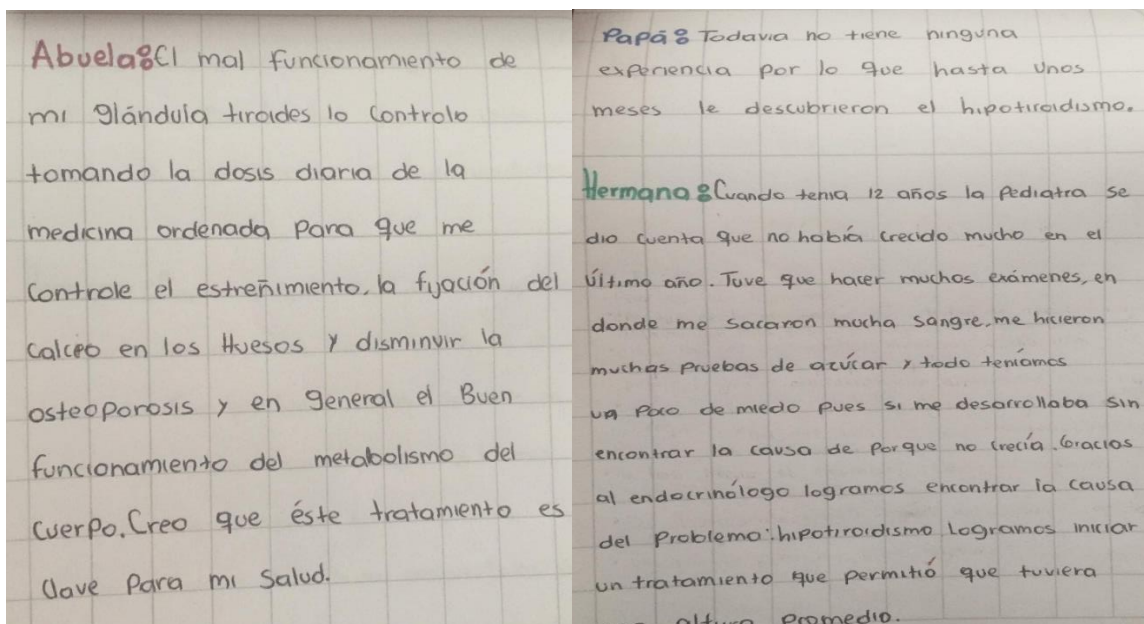 Abuela: El mal funcionamiento de
mi glándula tiroides lo controlo
tomando la dosis diaria de la
medicina ordenada para que me
controle el estreñimiento, la fijación del
calceo en los Huesos y disminuir la
osteoporosis y en general el Buen
funcionamiento del metabolismo del
cuerpo. Creo que éste tratamiento es
clave para mi salud.
Papá: Todavia no tiene ninguna
experiencia por lo que hasta unos
meses le descubrieron el hipotiroidismo.
Hermana: Cuando tenia 12 años la pediatra se
dio cuenta que no había crecido mucho en el
último año. Tuve que hacer muchos exámenes, en
donde me sacaron mucha sangre, me hicieron
muchas pruebas de azúcar y todo teníamos
un poco de miedo pues si me desarrollaba sin
encontrar la causa de porque no crecía. Gracias
al endocrinólogo logramos encontrar la causa
del Problema: hipotiroidismo Logramos iniciar
un tratamiento que permitió que tuviera
altura promedio.